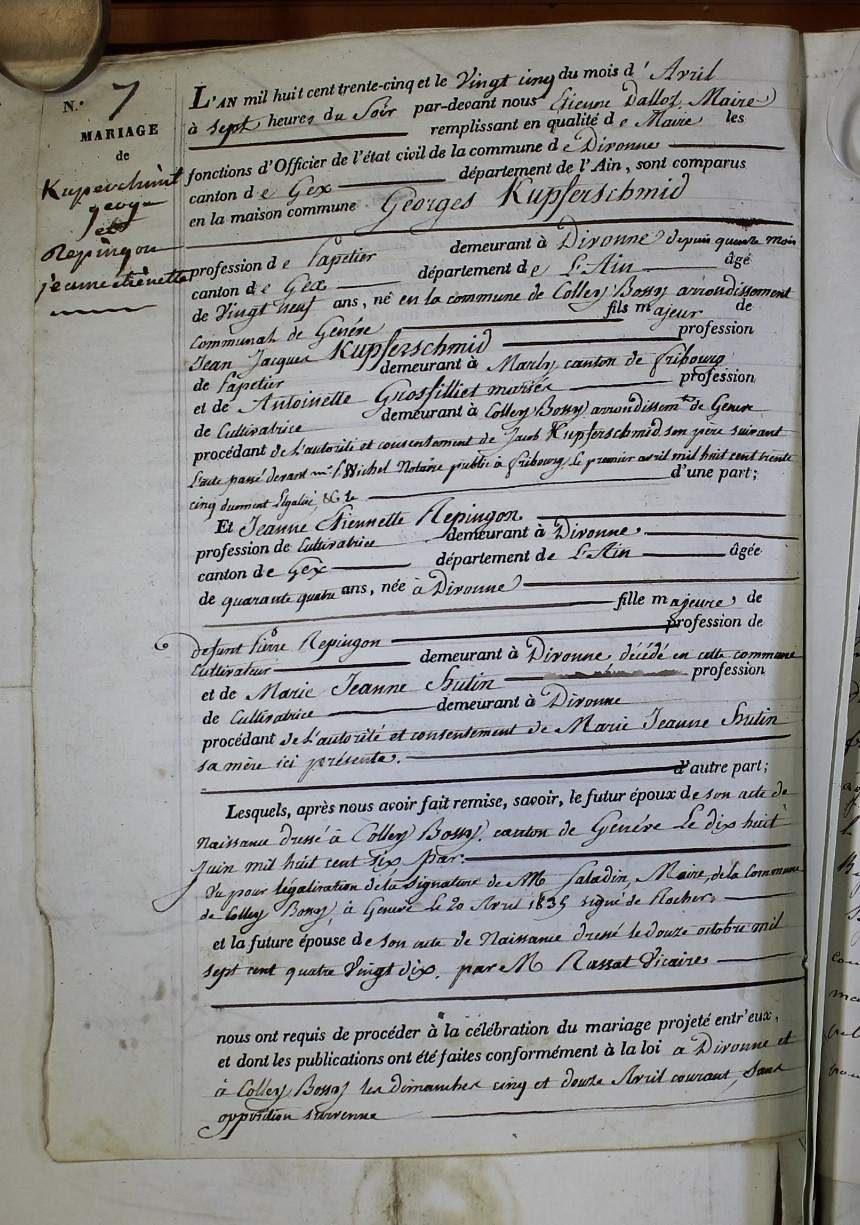 N.° 7
MARIAGE
de
Kupferchmit
george
et
Repingon
jeanne etiennette
L'AN mil huit cent trente-cinq et le Vingt cinq du mois d' Avril
à sept heures du Soir par-devant nous Etienne Dalloz, Maire
remplissant en qualité de Maire les
fonctions d'Officier de l'état civil de la commune de Divonne
canton de Gex département de l'Ain, sont comparus
en la maison commune Georges Kupferschmid
profession de Papetier demeurant à Divonne depuis quinze mois
canton de Gex département de L'Ain âgé
de Vingt neuf ans, né en la commune de Colley Bossy arrondissement
Communal de Genéve fils majeur de
Jean Jacques Kupferschmid profession
de Papetier demeurant à Marly canton de fribourg
et de Antoinette Grosfilliet mariés profession
de Cultivatrice demeurant à Colley Bossy arrondissem.t de Geneve
procédant de L'autorité et consentement de Jacob Kupferschmid son père suivant
L'acte passé devant m.e Notaire public à fribourg Le premier avril mil huit cent trente
cinq dument Légalisé, &c. d'une part;
Et Jeanne Etiennette Repingon
profession de Cultivatrice demeurant à Divonne
canton de Gex département de L'Ain âgée
de quarante quatre ans, née à Divonne
fille majeure de
defunt Pierre Repingon profession de
Cultivateur demeurant à Divonne, décédé en cette commune
et de Marie Jeanne Hutin profession
de Cultivatrice demeurant à Divonne
procédant de L'autorité et consentement de Marie Jeanne Hutin
sa mère ici présente. d'autre part;
Lesquels, après nous avoir fait remise, savoir, le futur époux de son acte de
Naissance dressé à Colley Bossy, canton de Genéve Le dix huit
Juin mil huit cent six par:
Vu pour légalisation de la Signature de M Saladin, Maire, de la Commune
de Colley Bossy, à Geneve Le 20 Avril 1835 signé de Rocher.
et la future épouse de son acte de Naissance dressé le douze octobre mil
sept cent quatre Vingt dix. par M Rassat Vicaire
nous ont requis de procéder à la célébration du mariage projeté entr'eux,
et dont les publications ont été faites conformément à la loi à Divonne et
à Colley Bossy les dimanches cinq et douze Avril courant, sans
opposition survenue